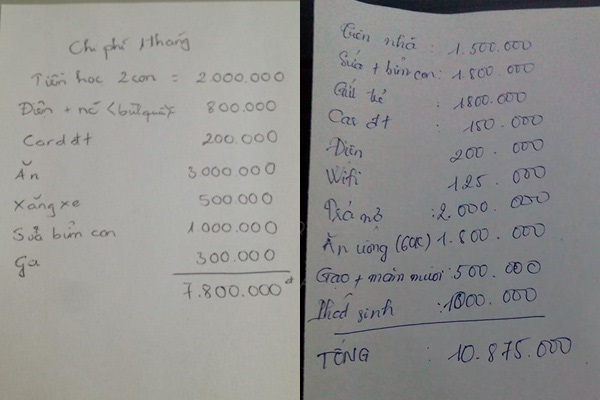 Chi phí 1 tháng
Tiền học 2 con = 2.000.000
Điện + nc <bù quá> 800.000
Card đt 200.000
Ăn 3000.000
Xăng xe 500.000
Sữa bỉm con 1000.000
Ga 300.000
7.800.000đ
Tiền nhà : 1.500.000
Sữa + bỉm con : 1.800.000
Gửi bé 1800.000
Card đt : 150.000
Điện 200.000
Wifi 125.000
Trả nợ : 2.000.000
Ăn uống (60k) 1.800.000
Gạo + mắm muối : 500.000
Phát sinh : 1000.000
TỔNG : 10.875.000